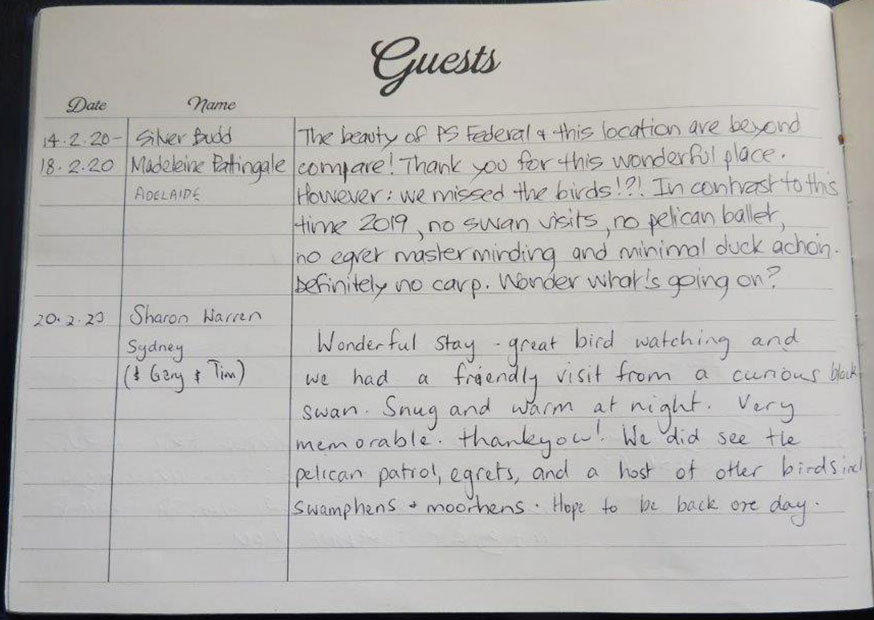 Guests
Date Name
14.2.20- Silver Budd The beauty of PS Federal & this location are beyond
18.2.20 Madeleine Pattingale compare! Thank you for this wonderful place.
ADELAIDE However: we missed the birds!?! In contrast to this
time 2019, no swan visits, no pelican ballet,
no egret masterminding and minimal duck action.
Definitely no carp. Wonder what's going on?
20.2.20 Sharon Warren
Sydney Wonderful stay - great bird watching and
(& Gary & Tim) we had a friendly visit from a curious black
swan. Snug and warm at night. Very
memorable. thankyou! We did see the
pelican patrol, egrets, and a host of other birds incl
swamphens + moorhens. Hope to be back one day.